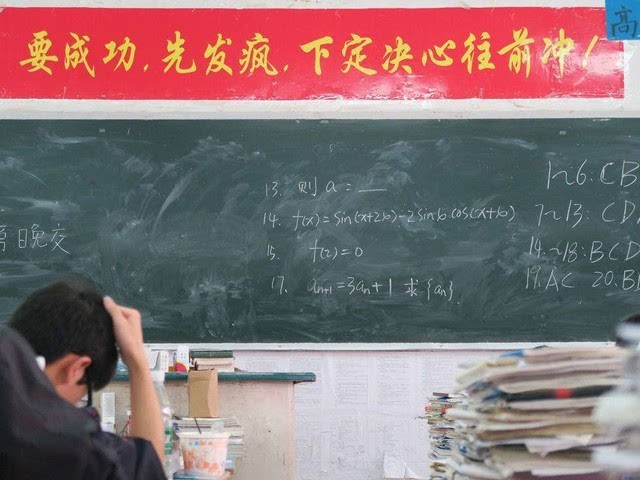 要成功，先发疯，下定决心往前冲！
高
13. 则a=__
14. f(x)=sin(x+2φ)-2sinφcos(x+φ)
15. f(2)=0
17. aₙ₊₁=3aₙ+1 求{aₙ}
日晚交
1~6:CB
7~13:CD
14~18:BCD
19.AC 20.B